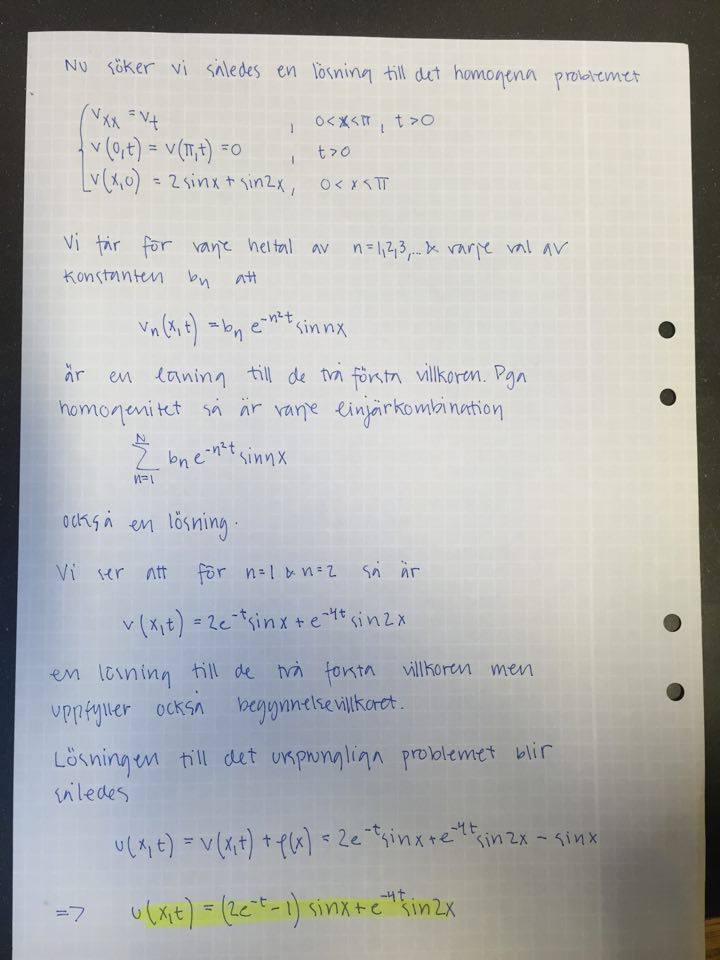 Nu söker vi således en lösning till det homogena problemet
v_xx = v_t , 0<x<π, t>0
v(0,t) = v(π,t) = 0 , t>0
v(x,0) = 2sinx + sin2x, 0<x<π
Vi får för varje heltal av n=1,2,3,... & varje val av
konstanten b_n att
v_n(x,t) = b_n e^{-n²t} sinnx
är en lösning till de två första villkoren. Pga
homogenitet så är varje linjärkombination
∑_{n=1}^{N} b_n e^{-n²t} sinnx
också en lösning.
Vi ser att för n=1 & n=2 så är
v(x,t) = 2e^{-t}sinx + e^{-4t}sin2x
en lösning till de två första villkoren men
uppfyller också begynnelsevillkoret.
Lösningen till det ursprungliga problemet blir
således
u(x,t) = v(x,t) + φ(x) = 2e^{-t}sinx + e^{-4t}sin2x - sinx
=> u(x,t) = (2e^{-t} - 1) sinx + e^{-4t}sin2x